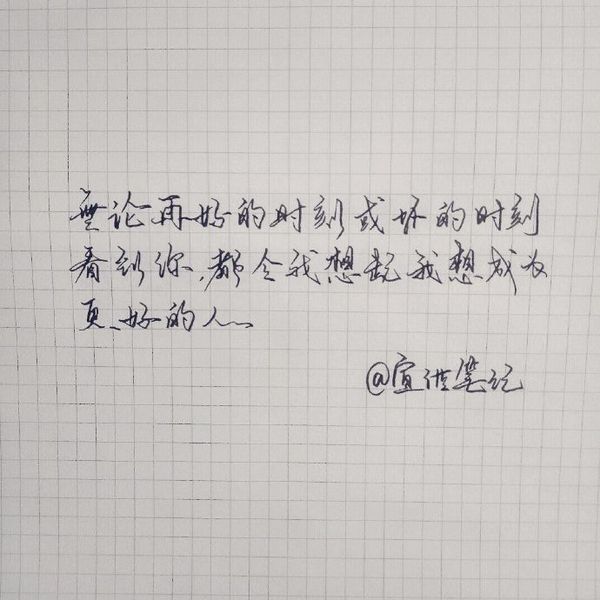 無论再好的时刻或坏的时刻
看到你,都令我想起我想成为
更好的人
@宣泄笔记